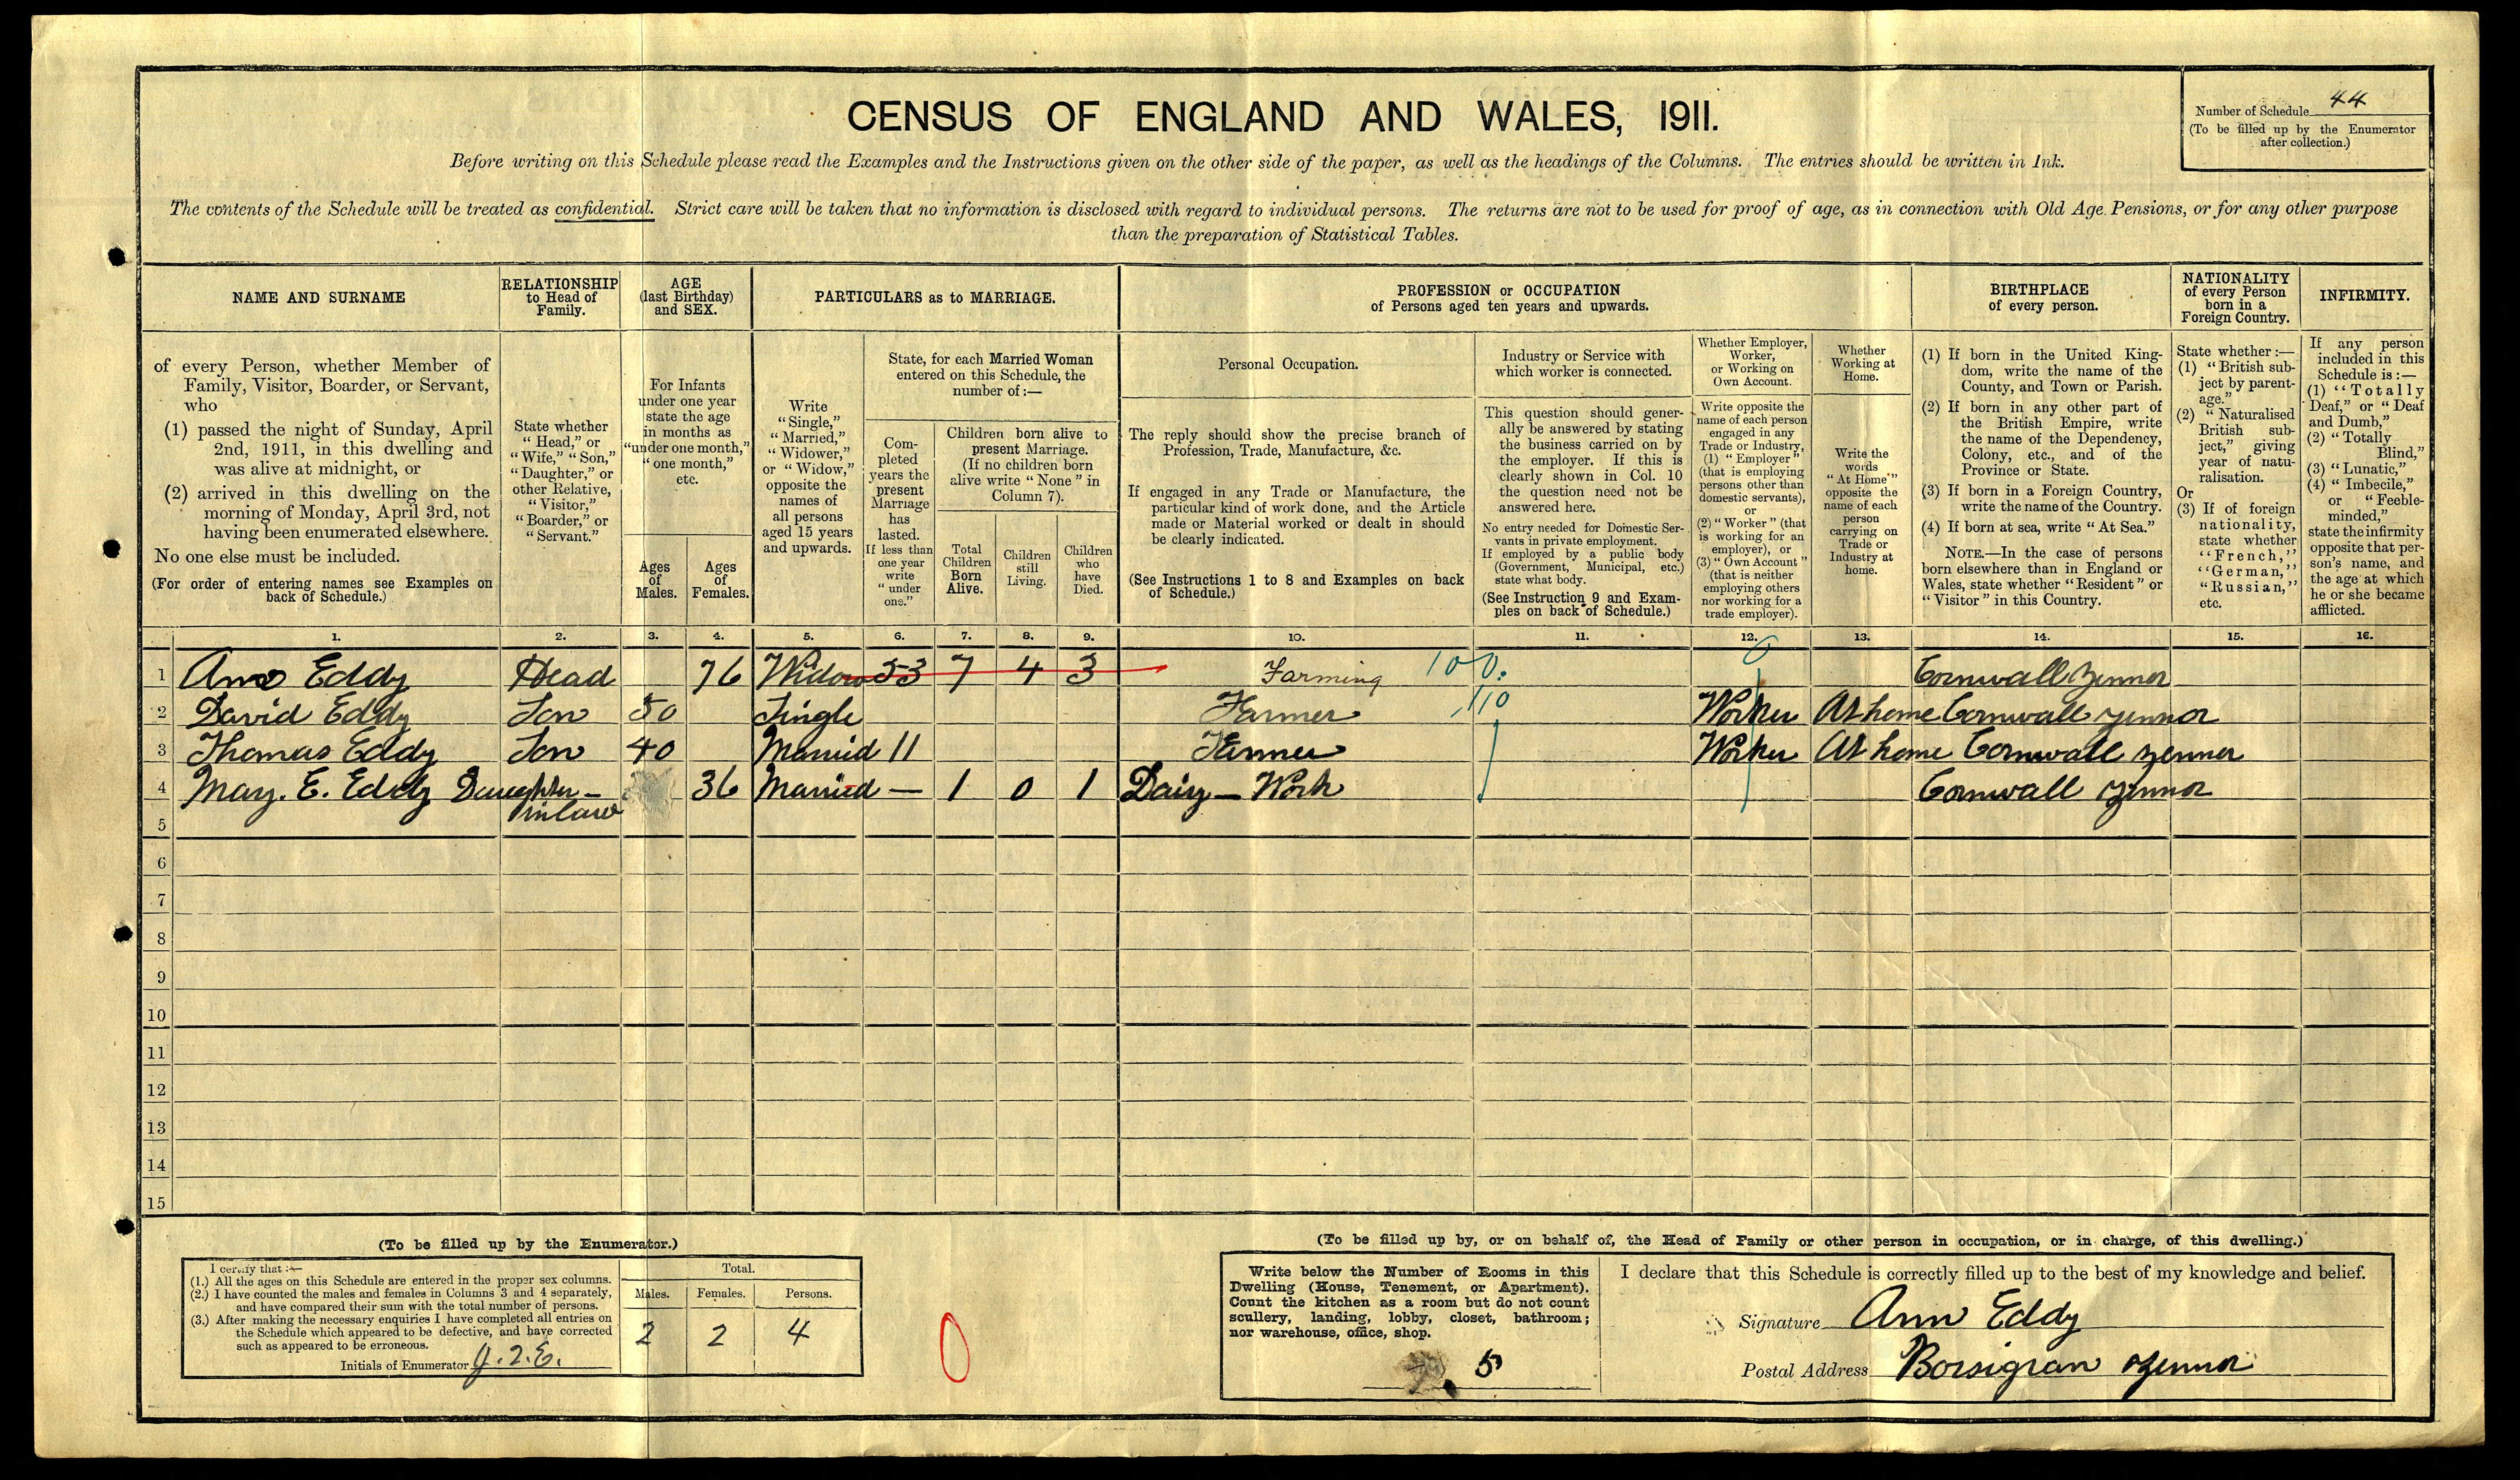 CENSUS OF ENGLAND AND WALES, 1911.
Number of Schedule 44
(To be filled up by the Enumerator
after collection.)
Before writing on this Schedule please read the Examples and the Instructions given on the other side of the paper, as well as the headings of the Columns. The entries should be written in Ink.
The contents of the Schedule will be treated as confidential. Strict care will be taken that no information is disclosed with regard to individual persons. The returns are not to be used for proof of age, as in connection with Old Age Pensions, or for any other purpose
than the preparation of Statistical Tables.
NAME AND SURNAME
of every Person, whether Member of
Family, Visitor, Boarder, or Servant,
who
(1) passed the night of Sunday, April
2nd, 1911, in this dwelling and
was alive at midnight, or
(2) arrived in this dwelling on the
morning of Monday, April 3rd, not
having been enumerated elsewhere.
No one else must be included.
(For order of entering names see Examples on
back of Schedule.)
RELATIONSHIP
to Head of
Family.
State whether
"Head," or
"Wife," "Son,"
"Daughter," or
other Relative,
"Visitor,"
"Boarder," or
"Servant."
AGE
(last Birthday)
and SEX.
For Infants
under one year
state the age
in months as
"under one month,"
"one month,"
etc.
Ages
of
Males.
Ages
of
Females.
PARTICULARS as to MARRIAGE.
Write
"Single,"
"Married,"
"Widower,"
or "Widow,"
opposite the
names of
all persons
aged 15 years
and upwards.
State, for each Married Woman
entered on this Schedule, the
number of:—
Com-
pleted
years the
present
Marriage
has
lasted.
If less than
one year
write
"under
one."
Children born alive to
present Marriage.
(If no children born
alive write "None" in
Column 7).
Total
Children
Born
Alive.
Children
still
Living.
Children
who
have
Died.
PROFESSION or OCCUPATION
of Persons aged ten years and upwards.
Personal Occupation.
The reply should show the precise branch of
Profession, Trade, Manufacture, &c.
If engaged in any Trade or Manufacture, the
particular kind of work done, and the Article
made or Material worked or dealt in should
be clearly indicated.
(See Instructions 1 to 8 and Examples on back
of Schedule.)
Industry or Service with
which worker is connected.
This question should gener-
ally be answered by stating
the business carried on by
the employer. If this is
clearly shown in Col. 10
the question need not be
answered here.
No entry needed for Domestic Ser-
vants in private employment.
If employed by a public body
(Government, Municipal, etc.)
state what body.
(See Instruction 9 and Exam-
ples on back of Schedule.)
Whether Employer,
Worker,
or Working on
Own Account.
Write opposite the
name of each person
engaged in any
Trade or Industry,
(1) "Employer"
(that is employing
persons other than
domestic servants),
or
(2) "Worker" (that
is working for an
employer), or
(3) "Own Account"
(that is neither
employing others
nor working for a
trade employer).
Whether
Working at
Home.
Write the
words
"At Home"
opposite the
name of each
person
carrying on
Trade or
Industry at
home.
BIRTHPLACE
of every person.
(1) If born in the United King-
dom, write the name of the
County, and Town or Parish.
(2) If born in any other part of
the British Empire, write
the name of the Dependency,
Colony, etc., and of the
Province or State.
(3) If born in a Foreign Country,
write the name of the Country.
(4) If born at sea, write "At Sea."
NOTE.—In the case of persons
born elsewhere than in England or
Wales, state whether "Resident" or
"Visitor" in this Country.
NATIONALITY
of every Person
born in a
Foreign Country.
State whether :—
(1) "British sub-
ject by parent-
age."
(2) "Naturalised
British sub-
ject," giving
year of natu-
ralisation.
Or
(3) If of foreign
nationality,
state whether
"French,"
"German,"
"Russian,"
etc.
INFIRMITY.
If any person
included in this
Schedule is:—
(1) "Totally
Deaf," or "Deaf
and Dumb,"
(2) "Totally
Blind,"
(3) "Lunatic,"
(4) "Imbecile,"
or "Feeble-
minded,"
state the infirmity
opposite that per-
son's name, and
the age at which
he or she became
afflicted.
1. 2. 3. 4. 5. 6. 7. 8. 9. 10. 11. 12. 13. 14. 15. 16.
1 Ann Eddy Head 76 Widow 53 7 4 3 Farming 100. Cornwall Zennor
2 David Eddy Son 50 Single Farmer 110 Worker At home Cornwall Zennor
3 Thomas Eddy Son 40 Married 11 Farmer Worker At home Cornwall Zennor
4 Mary. E. Eddy Daughter- 36 Married — 1 0 1 Dairy - Work Cornwall Zennor
in law
5
6
7
8
9
10
11
12
13
14
15
(To be filled up by the Enumerator.)
I certify that :—
(1.) All the ages on this Schedule are entered in the proper sex columns.
(2.) I have counted the males and females in Columns 3 and 4 separately,
and have compared their sum with the total number of persons.
(3.) After making the necessary enquiries I have completed all entries on
the Schedule which appeared to be defective, and have corrected
such as appeared to be erroneous.
Initials of Enumerator
Total.
Males. Females. Persons.
2 2 4
0
(To be filled up by, or on behalf of, the Head of Family or other person in occupation, or in charge, of this dwelling.)
Write below the Number of Rooms in this
Dwelling (House, Tenement, or Apartment).
Count the kitchen as a room but do not count
scullery, landing, lobby, closet, bathroom;
nor warehouse, office, shop.
5
I declare that this Schedule is correctly filled up to the best of my knowledge and belief.
Signature Ann Eddy
Postal Address Borsigran Zennor